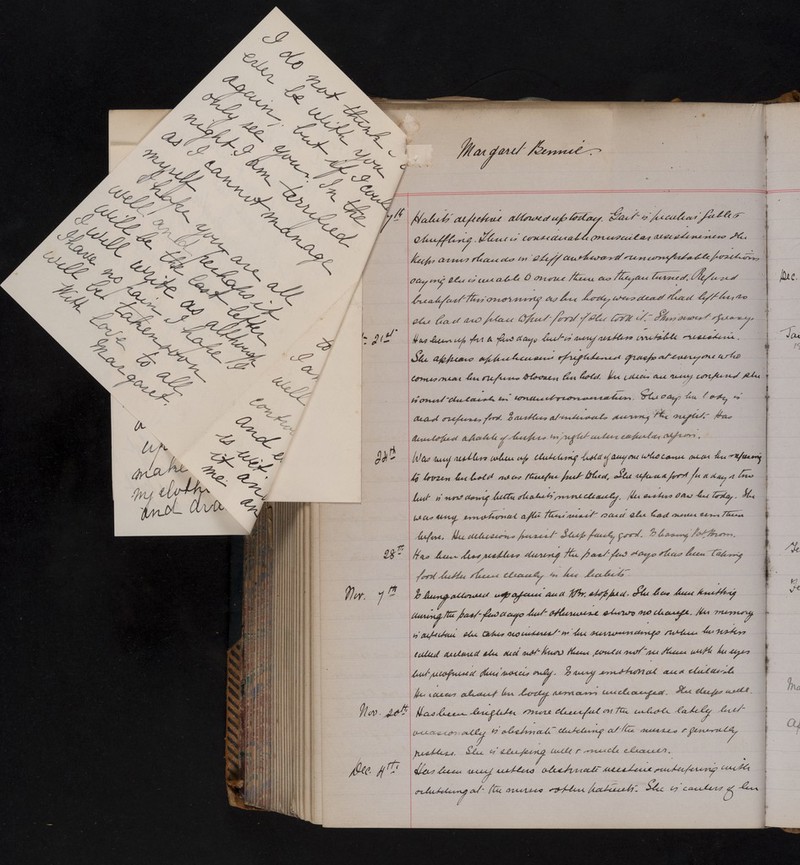 I do not think I
ever be with you
again, but if I could
only see you. In the
night I am terrified
as I cannot manage
myself
I hope you are all
well, and perhaps it
will be the last letter
I will write as although
I have no pain I hope I
will be taken soon
With love to all
Margaret.
to
I am
well
and
is
it an
me an
up
my
and dra
Margaret Bennie.
Habits defective allowed up today. Gait is peculiar feeble &
shuffling. There is considerable muscular resistiveness she
keeps arms & hands in stiff awkward & uncomfortable positions
saying she is unable to move them as they are turned. Refused
breakfast this morning as her body was dead & had left her so
she had no place to put food if she took it.
21st
Has been up for a few days but is very restless irritable & resistive.
She appears apprehensive & frightened grasps at everyone who
comes near her & refuses to loosen her hold. Her ideas are very confused she
is most childish in conduct & conversation. She says her body is
dead & refuses food. Is restless at intervals during the night. Has
developed a habit of
24th
Was very restless when up clutching hold of anyone who came near her & refusing
to loosen her hold & was therefore put to bed. She refused food for a day or two
but is now doing better & habits more cleanly. Her sisters saw her today. She
was very emotional after their visit & said she had never seen them
before. Her delusions persist. Sleep fairly good.
28th
Has been less restless during the past few days & has been taking
food better & been cleanly in her habits.
Nov. 7th
Is being allowed up again and stopped. She has been knitting
during the past few days but otherwise shows no change. Her memory
is defective she takes no interest in her surroundings & when her sisters
called declared she did not know them could not see them with her eyes
but recognised their voices only. Is very emotional and childish
Her ideas about her body remain unchanged. She sleeps well.
Nov. 20th
Has been brighter & more cheerful on the whole lately but
occasionally is obstinate clutching at the nurses & generally
restless. She is sleeping well & much cleaner.
Dec. 4th
Has been very restless obstinate resistive & interfering with
& clutching at the nurses & other patients. She is careless of her
Dec.